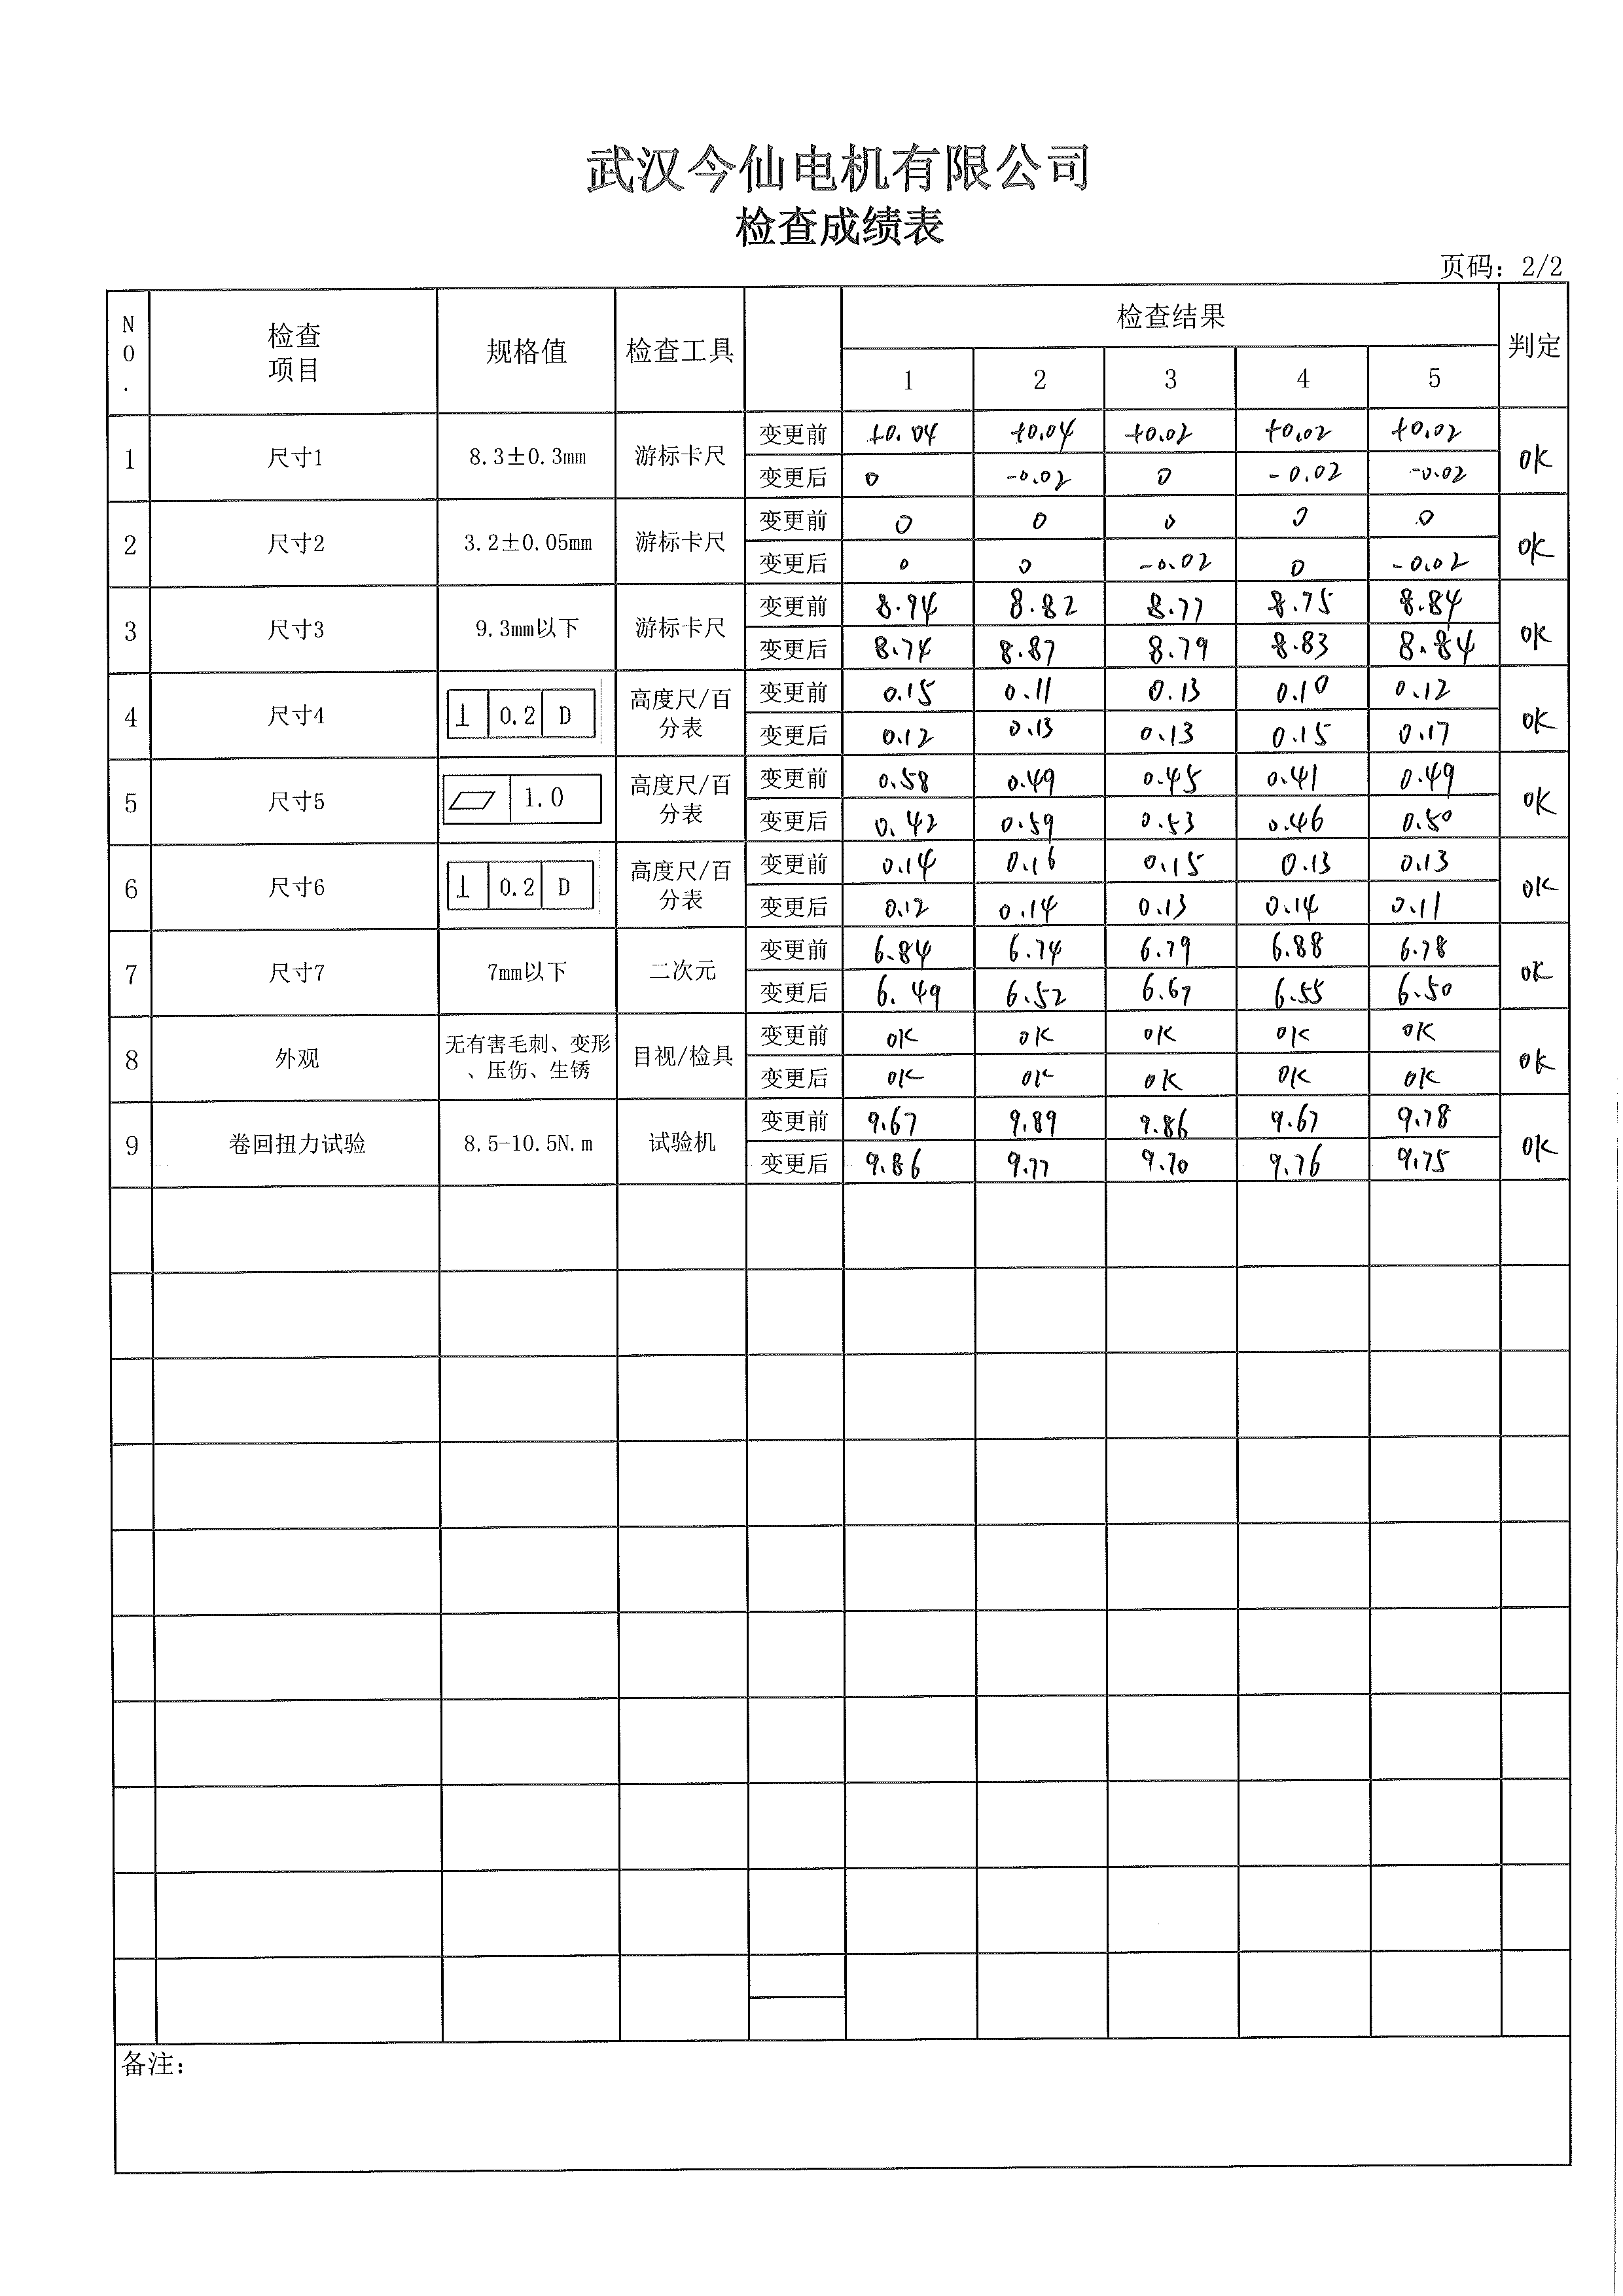 武汉今仙电机有限公司
检查成绩表
页码：2/2
NO. 检查项目 规格值 检查工具 检查结果 判定
1 2 3 4 5
1 尺寸1 8.3±0.3mm 游标卡尺 变更前 +0.04 +0.04 +0.02 +0.02 +0.02 OK
变更后 0 -0.02 0 -0.02 -0.02
2 尺寸2 3.2±0.05mm 游标卡尺 变更前 0 0 0 0 0 OK
变更后 0 0 -0.02 0 -0.02
3 尺寸3 9.3mm以下 游标卡尺 变更前 8.94 8.82 8.77 8.75 8.84 OK
变更后 8.74 8.87 8.79 8.83 8.84
4 尺寸4 ⊥ 0.2 D 高度尺/百分表 变更前 0.15 0.11 0.13 0.10 0.12 OK
变更后 0.12 0.13 0.13 0.15 0.17
5 尺寸5 ▱ 1.0 高度尺/百分表 变更前 0.58 0.49 0.45 0.41 0.49 OK
变更后 0.42 0.59 0.53 0.46 0.50
6 尺寸6 ⊥ 0.2 D 高度尺/百分表 变更前 0.14 0.16 0.15 0.13 0.13 OK
变更后 0.12 0.14 0.13 0.14 0.11
7 尺寸7 7mm以下 二次元 变更前 6.84 6.74 6.79 6.88 6.78 OK
变更后 6.49 6.52 6.67 6.55 6.50
8 外观 无有害毛刺、变形、压伤、生锈 目视/检具 变更前 OK OK OK OK OK OK
变更后 OK OK OK OK OK
9 卷回扭力试验 8.5-10.5N.m 试验机 变更前 9.67 9.89 9.86 9.67 9.78 OK
变更后 9.86 9.77 9.70 9.76 9.75
备注：